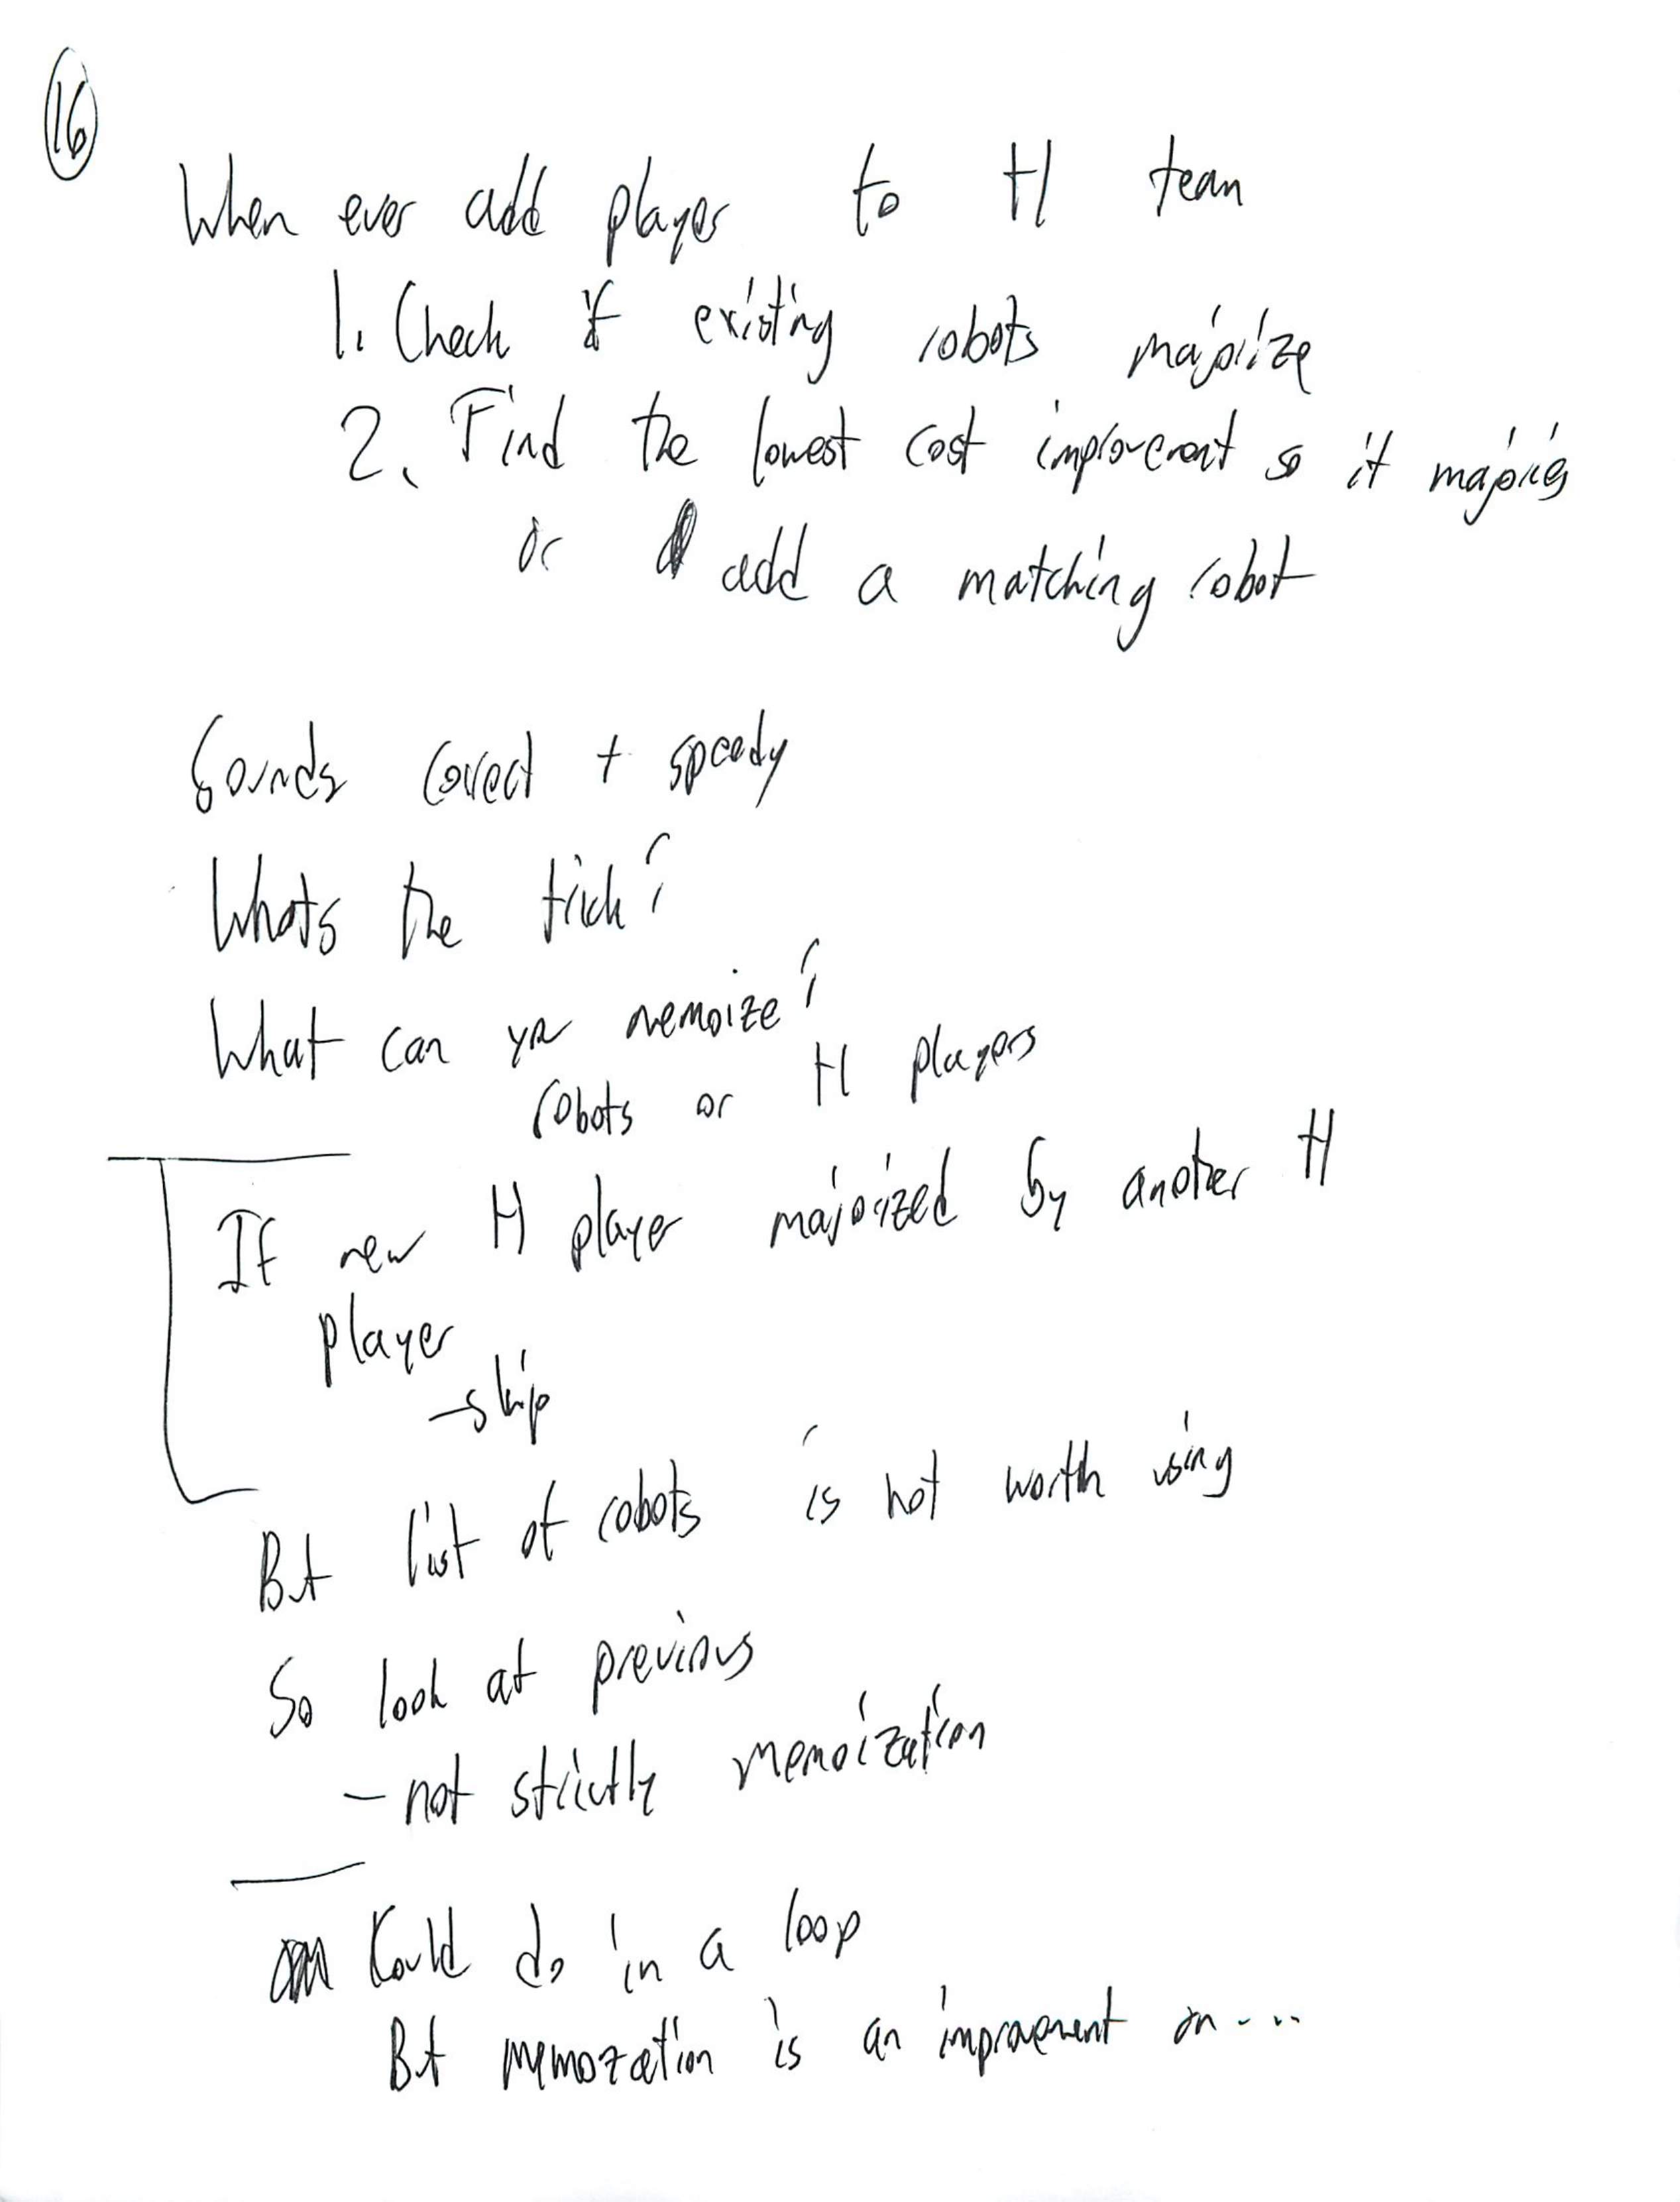 16
When ever add player to H team
1. Check if existing robots majorize
2. Find the lowest cost improvement so it majorizes
or add a matching robot
Sounds correct + speedy
Whats the trick?
What can you memoize?
robots or H players
If new H player majorized by another H
player
- skip
But list of robots is not worth using
So look at previous
- not strictly memoization
Could do in a loop
But memozation is an improvement on ....